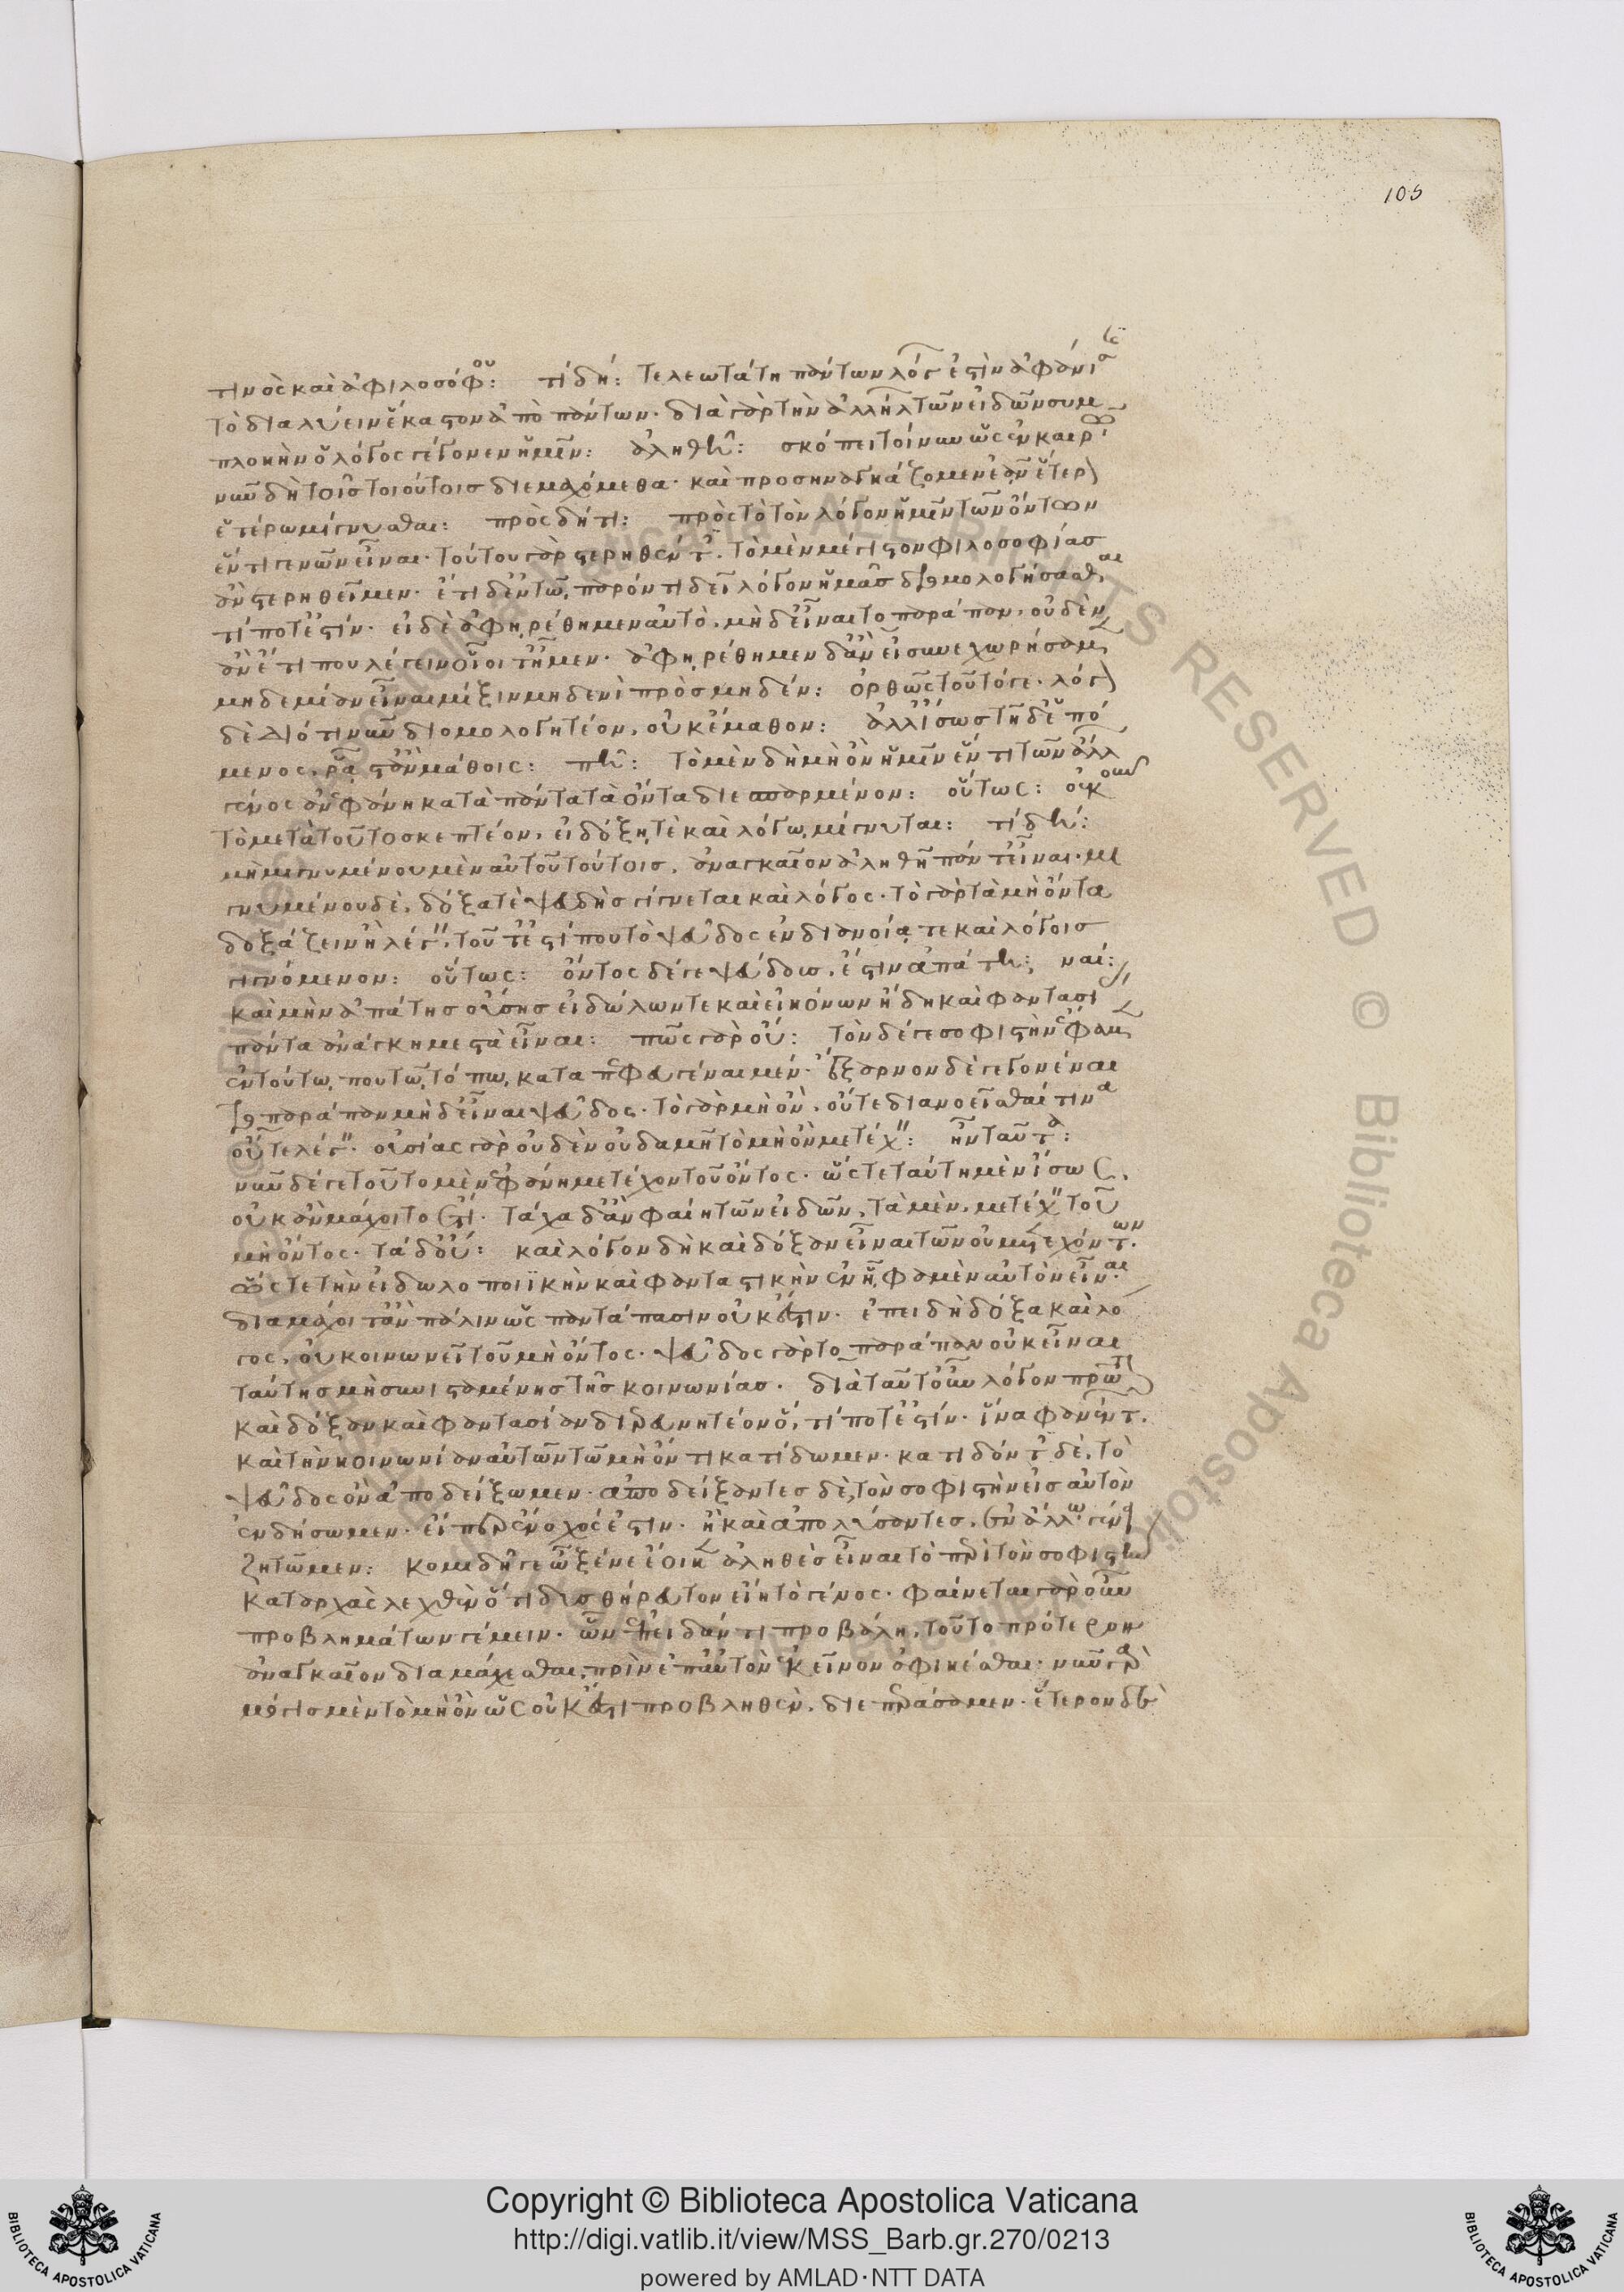 105
τινὸς καὶ ἀφιλοσόφου: τί δή: τελεωτάτη πάντων λόγ ἐστὶν ἀφάνισ
τὸ διαλύειν ἕκαστον ἀπὸ πάντων· διὰ γὰρ τὴν ἀλλήλ τῶν εἰδῶν συμ
πλοκὴν ὁ λόγος γέγονεν ἡμῖν: ἀληθῆ: σκόπει τοίνυν ὡς ἐν καιρ
νῦν δὴ τοῖς τοιούτοις διεμαχόμεθα· καὶ προσηναγκάζομεν ἐᾶν ἕτερ
ἑτέρω μίγνυσθαι: πρὸς δὴ τί: πρὸς τὸ τὸν λόγον ἡμῖν τῶν ὄντων
ἕν τι γενῶν εἶναι· τούτου γὰρ στερηθέντ. τὸ μὲν μέγιστον φιλοσοφίας
ἂν στερηθεῖμεν· ἔτι δ' ἐν τῶ παρόντι δεῖ λόγον ἡμᾶς διομολογήσασθαι
τί ποτ' ἐστίν· εἰ δὲ ἀφηρέθημεν αὐτὸ. μὴ δ' εἶναι τὸ παράπαν, οὐδὲν
ἂν ἔτι που λέγειν οἷοι τ' ἦμεν· ἀφηρέθημεν δ' ἂν εἰ συνεχωρήσαμ
μηδεμίαν εἶναι μίξιν μηδενὶ πρὸς μηδέν: ὀρθῶς τοῦτό γε· λόγ
δὲ διότι νῦν διομολογητέον, οὐκ ἔμαθον: ἀλλ' ἴσως τῆδ' ἑπό
μενος, ῥᾶστ' ἂν μάθοις: πῆ: τὸ μὲν δὴ μὴ ὂν ἡμῖν ἕν τι τῶν ἄλλ
γένος ὂν ἐφάνη κατὰ πάντα τὰ ὄντα διεσπαρμένον: οὕτως: οὐκοῦν
τὸ μετὰ τοῦτο σκεπτέον, εἰ δόξη τὲ καὶ λόγω μίγνυται: τί δή:
μὴ μιγνυμένου μὲν αὐτοῦ τούτοις, ἀναγκαῖον ἀληθῆ πάντ' εἶναι· μι
γνυμένου δὲ, δόξα τὲ ψευδὴς γίγνεται καὶ λόγος· τὸ γὰρ τὰ μὴ ὄντα
δοξάζειν ἢ λέγειν, τοῦτ' ἔστί που τὸ ψεῦδος ἐν διανοία τε καὶ λόγοις
γιγνόμενον: οὕτως: ὄντος δέ γε ψεύδους, ἔστιν ἀπάτη: ναί:
καὶ μὴν ἀπάτης οὔσης εἰδώλων τε καὶ εἰκόνων ἤδη καὶ φαντασί
πάντα ἀνάγκη μεστὰ εἶναι: πῶς γὰρ οὔ: τὸν δέ γε σοφιστὴν ἔφαμ
ἐν τούτω που τῶ τόπω καταπεφευγέναι μέν· ἔξαρνον δὲ γεγονέναι
τὸ παράπαν μὴ δ' εἶναι ψεῦδος· τὸ γὰρ μὴ ὂν, οὔτε διανοεῖσθαί τινα
οὔτε λέγειν· οὐσίας γὰρ οὐδὲν οὐδαμῆ τὸ μὴ ὂν μετέχειν: ἦν ταῦτα:
νῦν δέ γε τοῦτο μὲν ἐφάνη μετέχον τοῦ ὄντος· ὥστε ταύτη μὲν ἴσως
οὐκ ἂν μάχοιτο ἔτι· τάχα δ' ἂν φαίη τῶν εἰδῶν, τὰ μὲν, μετέχειν τοῦ
μὴ ὄντος· τὰ δ' οὔ: καὶ λόγον δὴ καὶ δόξαν εἶναι τῶν οὐ μετεχόντων.
ὥστε τὴν εἰδωλοποιϊκὴν καὶ φανταστικὴν ἐν ἧ φαμὲν αὐτὸν εἶναι
διαμάχοιτ' ἂν πάλιν ὡς παντάπασιν οὐκ ἔστιν· ἐπειδὴ δόξα καὶ λό
γος, οὐ κοινωνεῖ τοῦ μὴ ὄντος· ψεῦδος γὰρ τὸ παράπαν οὐκ εἶναι
ταύτης μὴ συνισταμένης τῆς κοινωνίας· διὰ ταῦτ' οὖν λόγον πρῶτ
καὶ δόξαν καὶ φαντασίαν διερευνητέον ὅ, τί ποτ' ἐστίν· ἵνα φανέντ.
καὶ τὴν κοινωνίαν αὐτῶν τῶ μὴ ὄντι κατίδωμεν· κατιδόντ δὲ, τὸ
ψεῦδος ὂν ἀποδείξωμεν· ἀποδείξαντες δὲ, τὸν σοφιστὴν εἰς αὐτὸν
ἐνδήσωμεν· εἴπερ ἔνοχός ἐστιν· ἢ καὶ ἀπολύσαντες, ἐν ἄλλω γέν
ζητῶμεν: κομιδῆ γε ὦ ξένε ἔοικ ἀληθὲς εἶναι τὸ περὶ τὸν σοφιστὴν
κατ' ἀρχὰς λεχθὲν ὅτι δυσθήρευτον εἴη τὸ γένος· φαίνεται γὰρ οὖν
προβλημάτων γέμειν· ὧν ἐπειδάν τι προβάλη, τοῦτο πρότερον
ἀναγκαῖον διαμάχεσθαι, πρὶν ἐπ' αὐτὸν ἐκεῖνον ἀφικέσθαι· νῦν γὰρ
μόγις μὲν τὸ μὴ ὂν ὡς οὐκ ἔστι προβληθὲν, διεπεράσαμεν· ἕτερον δὲ
Copyright © Biblioteca Apostolica Vaticana
http://digi.vatlib.it/view/MSS_Barb.gr.270/0213
powered by AMLAD·NTT DATA
BIBLIOTECA APOSTOLICA VATICANA
BIBLIOTECA APOSTOLICA VATICANA